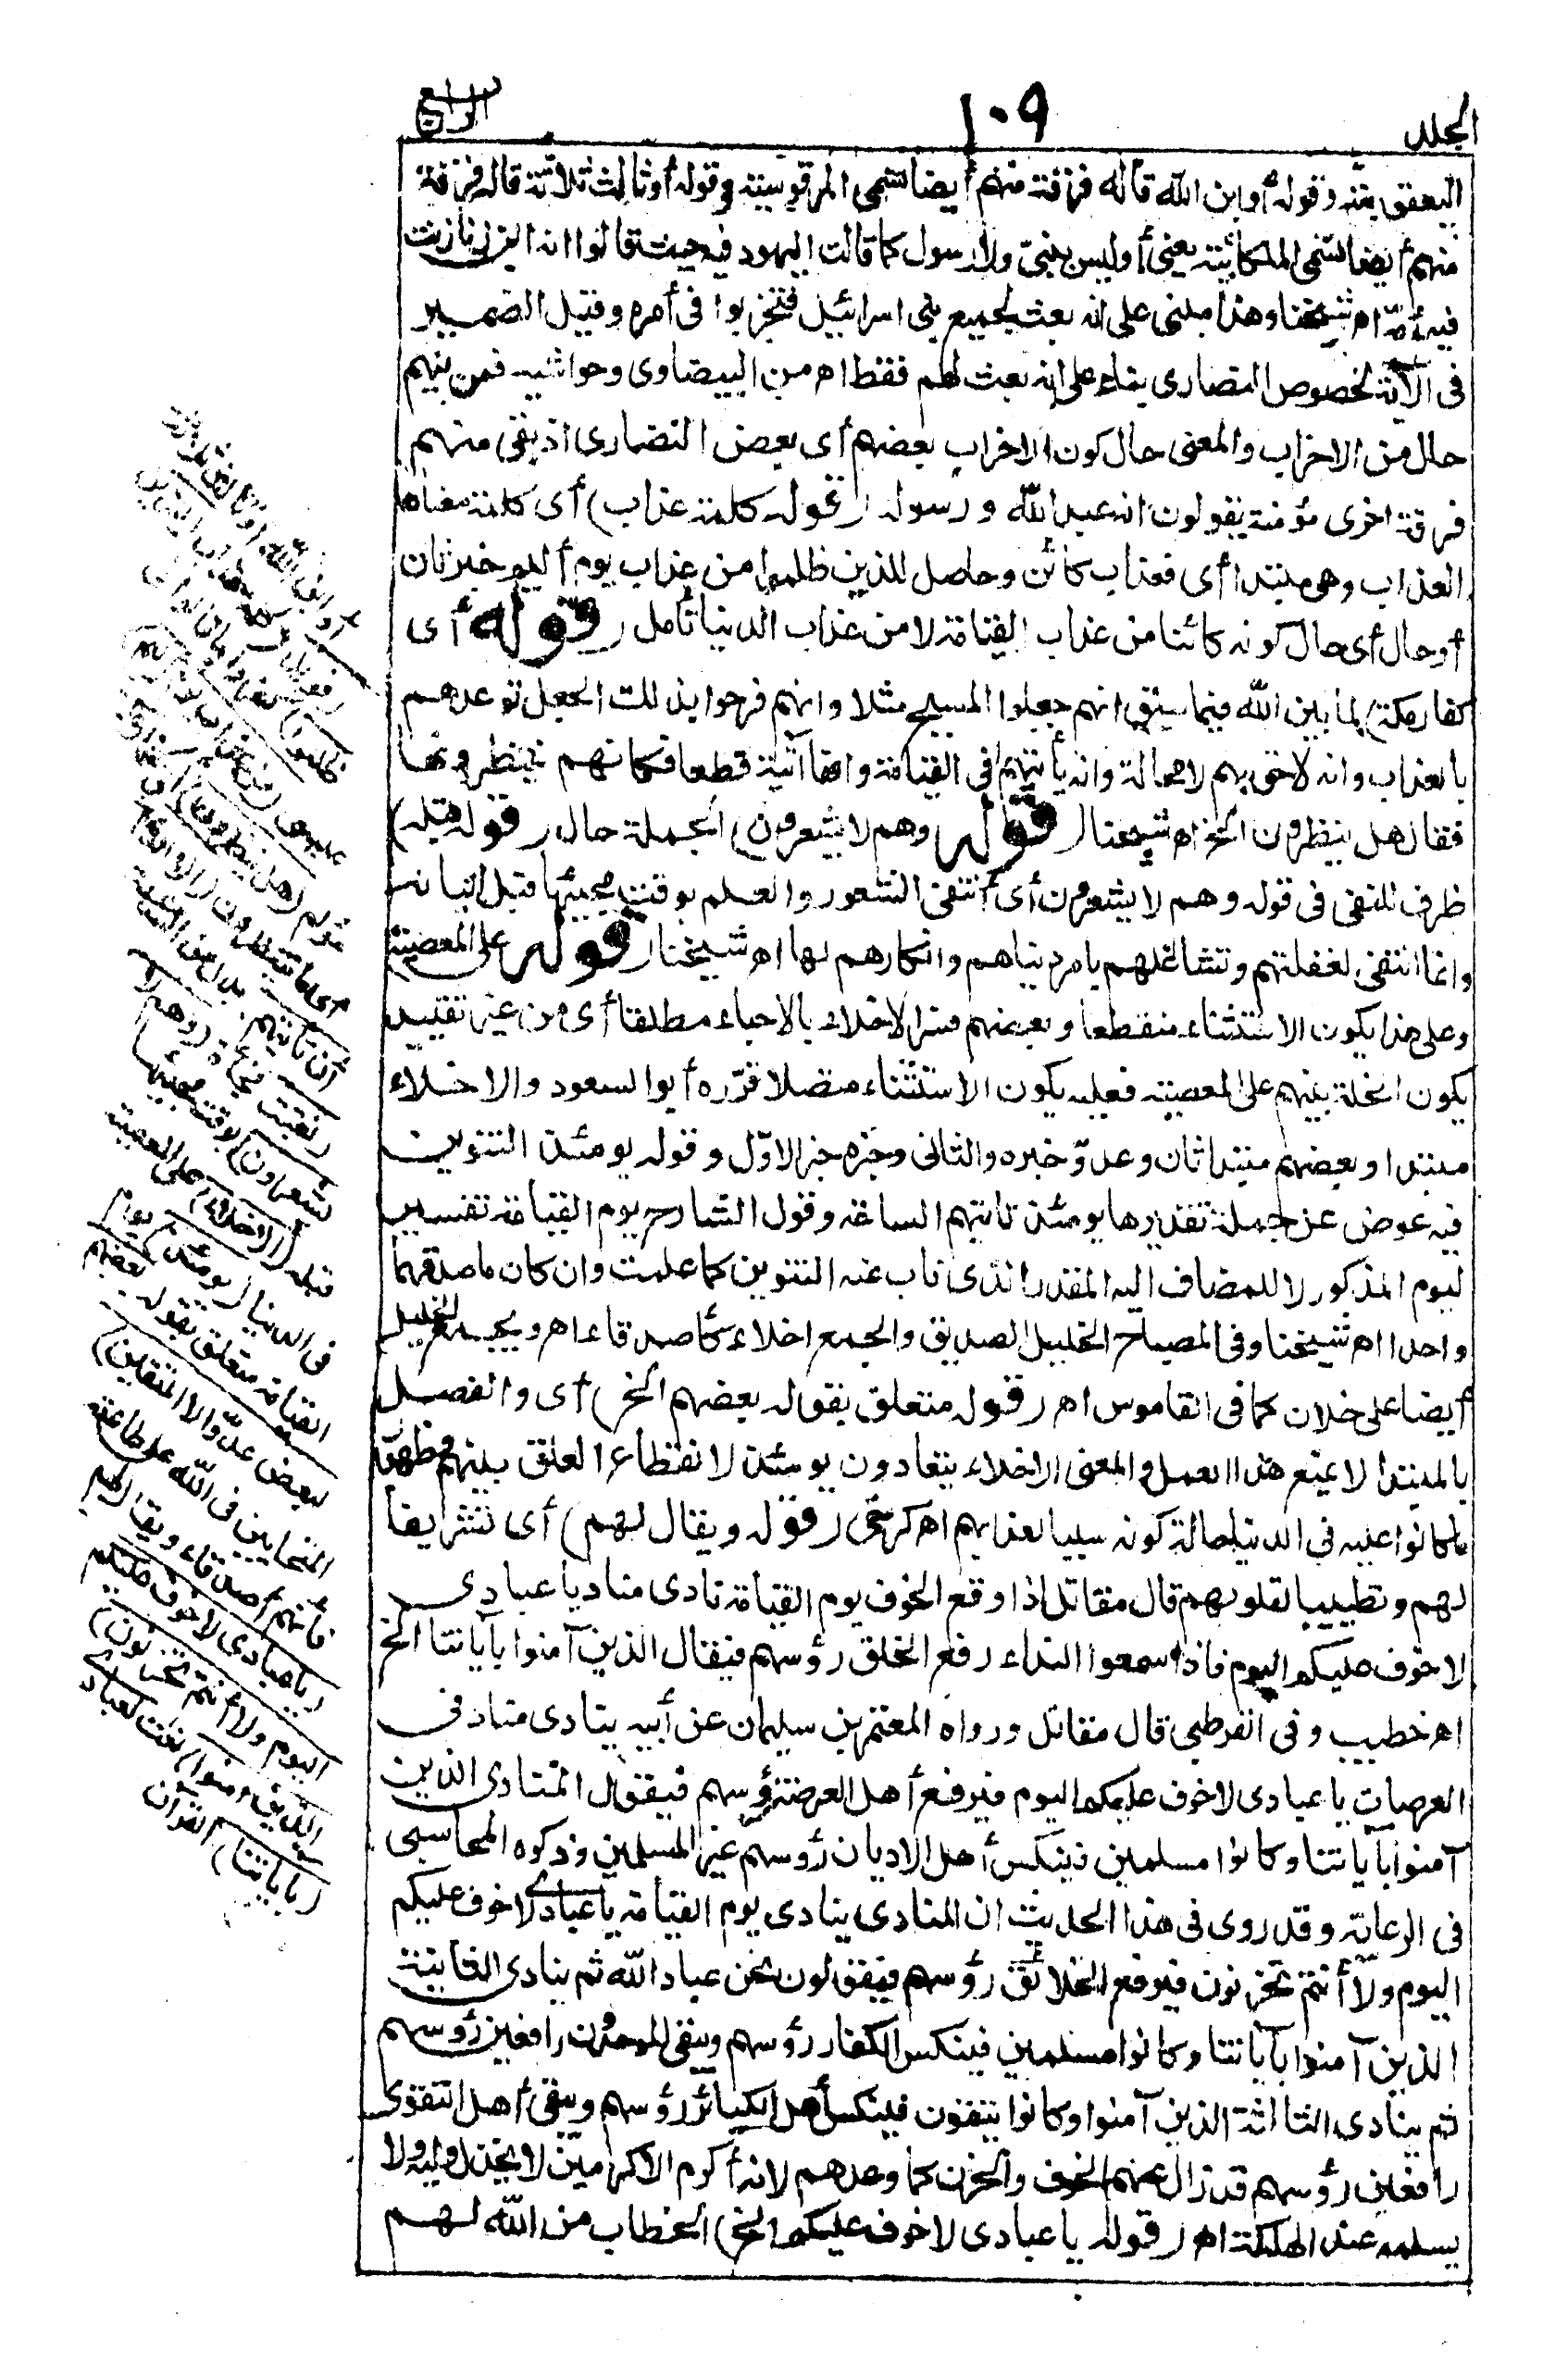 المجلد
١٠٩
الرابع
اليعقوبية وقوله أو ابن الله قاله فرقة منهم أيضا تسمى المرقوسية وقوله أو ثالث ثلاثة قاله فرقة
منهم أيضا تسمى الملكائية يعني أو ليس بنبي ولا رسول كما قالت اليهود فيه حيث قالوا انه ابن زنا زنت
فيه أمه اه شيخنا وهذا مبني على انه بعث لجميع بني اسرائيل فتحزبوا في أمره وقيل الضمير
في الآية لخصوص النصارى بناء على انه بعث لهم فقط اه من البيضاوى وحواشيه فمن بينهم
حال من الاحزاب والمعنى حال كون الاحزاب بعضهم أى بعض النصارى اذ بقى منهم
فرقة اخرى مؤمنة يقولون انه عبد الله ورسوله (قوله كلمة عذاب) أى كلمة معناها
العذاب وهى مبتدا أى فعذاب كائن وحاصل للذين ظلموا من عذاب يوم أليم خبر ثان
أو حال أى حال كونه كائنا من عذاب القيامة لا من عذاب الدنيا تأمل (قوله أى
كفار مكة) لما بين الله فيما سبق انهم جعلوا المسيح مثلا وانهم فرحوا بذلك الجعل توعدهم
بالعذاب وانه لاحق بهم لا محالة وانه يأتيهم في القيامة وانها آتية قطعا فكانهم ينظرونها
فقال هل ينظرون الخ اه شيخنا (قوله وهم لا يشعرون) الجملة حال (قوله قبله)
ظرف للنفى في قوله وهم لا يشعرون أى أنتفى الشعور والعلم بوقت مجيئها قبل اتيانه
وانما انتفى لغفلتهم وتشاغلهم بامر دنياهم وانكارهم لها اه شيخنا (قوله على المعصية)
وعلى هذا يكون الاستثناء منقطعا وبعضهم فسر الاخلاء بالاحباء مطلقا أى من غير تقييد
بكون الخلة بينهم على المعصية فعليه يكون الاستثناء متصلا قرّره أبو السعود والاخلاء
مبتدا وبعضهم مبتدا ثان وعدوّ خبره والثانى وخبره خبر الاوّل وقوله يومئذ التنوين
فيه عوض عن جملة تقديرها يومئذ تأتيهم الساعة وقول الشارح يوم القيامة تفسير
ليوم المذكور لا للمضاف اليه المقدر الذى ناب عنه التنوين كما علمت وان كان ماصدقهما
واحدا اه شيخنا وفى المصباح الخليل الصديق والجمع اخلاء كأصدقاء اه ويجمع الخليل
أيضا على خلان كما فى القاموس اه (قوله متعلق بقوله بعضهم الخ) أى والفصل
بالمبتدا لا يمنع هذا العمل والمعنى الاخلاء يتعادون يومئذ لانقطاع العلق بينهم وظهور
ما كانوا عليه في الدنيا حالة كونه سببا لعذابهم اه كرخى (قوله ويقال لهم) أى تشريفا
لهم وتطييبا لقلوبهم قال مقاتل اذا وقع الخوف يوم القيامة نادى مناد يا عبادى
لا خوف عليكم اليوم فاذا سمعوا النداء رفع الخلق رؤسهم فيقال الذين آمنوا بآياتنا الخ
اه خطيب وفى القرطبى قال مقاتل ورواه المعتمر بن سليمان عن أبيه ينادى مناد في
العرصات يا عبادى لا خوف عليكم اليوم فيرفع أهل العرصة رؤسهم فيقول المنادى الذين
آمنوا بآياتنا وكانوا مسلمين فينكس أهل الاديان رؤسهم غير المسلمين وذكره المحاسبى
فى الرعاية وقد روى فى هذا الحديث ان المنادى ينادى يوم القيامة يا عبادى لا خوف عليكم
اليوم ولا أنتم تحزنون فيرفع الخلائق رؤسهم فيقولون نحن عباد الله ثم ينادى الثانية
الذين آمنوا بآياتنا وكانوا مسلمين فينكس الكفار رؤسهم ويبقى الموحدون رافعين رؤسهم
ثم ينادى الثالثة الذين آمنوا وكانوا يتقون فينكس أهل الكبائر رؤسهم ويبقى أهل التقوى
رافعين رؤسهم قد زال عنهم الخوف والحزن كما وعدهم لانه أكرم الاكرمين لا يخذل وليه ولا
يسلمه عند الهلكة اه (قوله يا عبادى لا خوف عليكم الخ) الخطاب من الله لهم
أو ابن الله أو ثالث ثلاثة
(فويل) كلمة عذاب (للذين
ظلموا)
(من عذاب يوم
أليم)
(هل ينظرون) أى
أى ما ينتظرون (الا الساعة
أن تأتيهم) بدل من الساعة
(بغتة) فجأة (وهم لا
يشعرون) بوقت مجيئها
قبله (الاخلاء) على المعصية
في الدنيا (يومئذ) يوم
القيامة متعلق بقوله (بعضهم
لبعض عدوّ الا المتقين)
المتحابين فى الله على طاعته
فأنهم أصدقاء ويقال لهم
(يا عبادى لا خوف عليكم
اليوم ولا أنتم تحزنون)
(الذين آمنوا) نعت لعبادى
(بآياتنا) القرآن